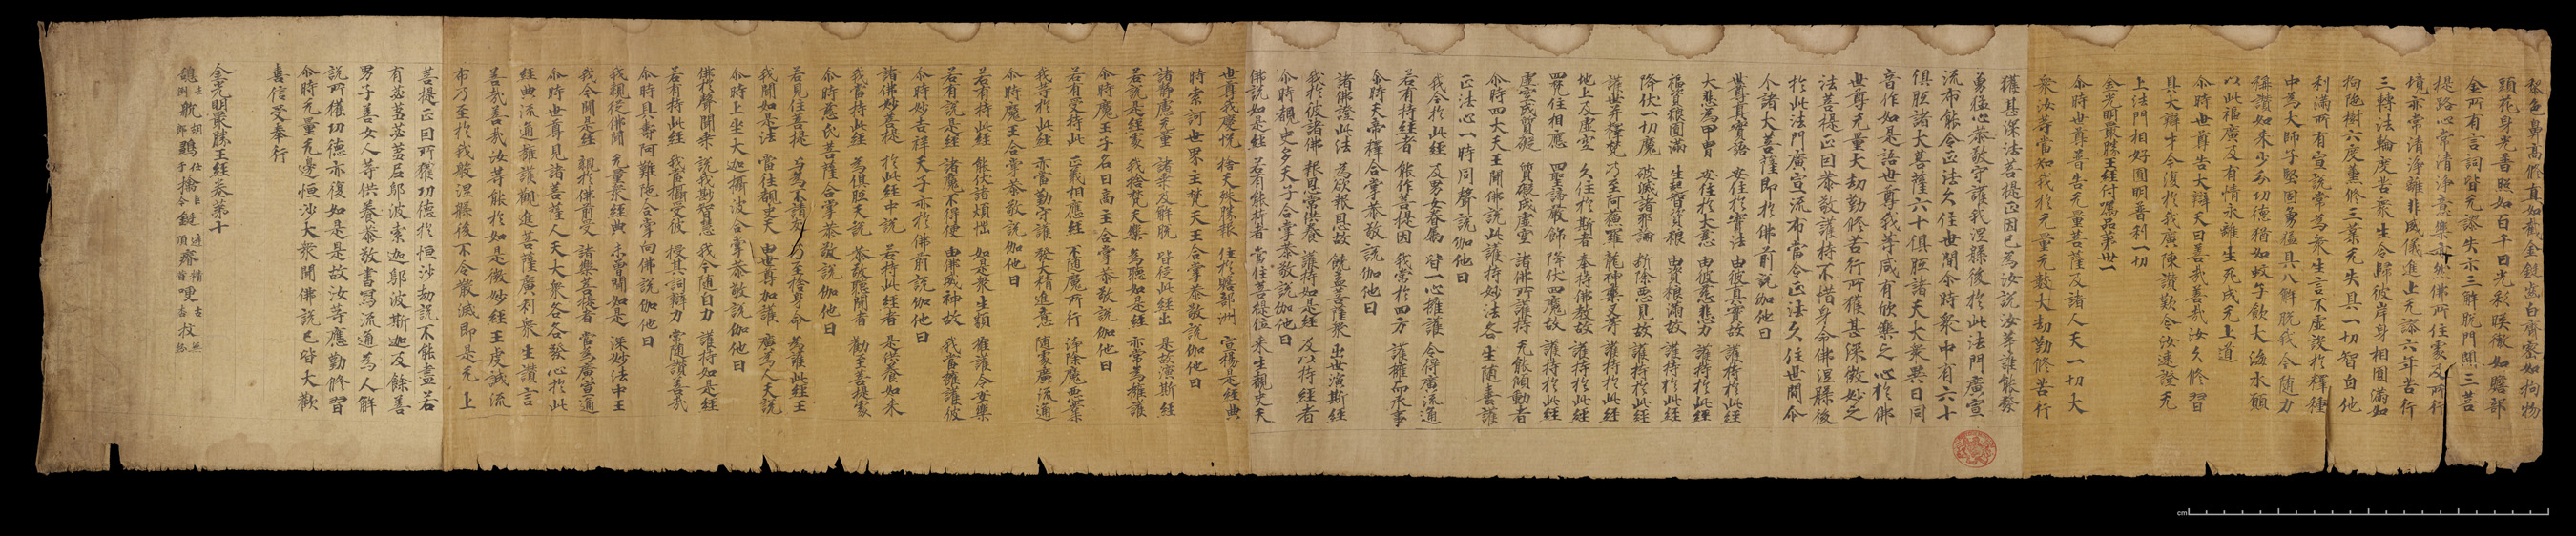 黎色鼻高脩直如截金鋌齒白齊密如拘物
頭花身光普照如百千日光彩暎徹如贍部
金所有言詞皆无謬失示三解脫門開三菩
提路心常清淨意樂亦然佛所住處及所行
境亦常清淨離非威儀進止无謬六年苦行
三轉法輪度苦衆生令歸彼岸身相圓滿如
拘陁樹六度薰修三業无失具一切智自他
利滿所有宣說常為衆生言不虛設於釋種
中為大師子堅固勇猛具八解脫我今隨力
稱讚如來少分功德猶如蚊子飲大海水願
以此福廣及有情永離生死成无上道
尒時世尊告大辯天曰善哉善哉汝久修習
具大辯才今復於我廣陳讚歎令汝速證无
上法門相好圓明普利一切
金光明最勝王經付囑品第卅一
尒時世尊普告无量菩薩及諸人天一切大
衆汝等當知我於无量无數大劫勤修苦行
獲甚深法菩提正因已為汝說汝等誰能發
勇猛心恭敬守護我涅槃後於此法門廣宣
流布能令正法久住世閒尒時衆中有六十
俱胝諸大菩薩六十俱胝諸天大衆異口同
音作如是語世尊我等咸有欣樂之心於佛
世尊无量大劫勤修苦行所獲甚深微妙之
法菩提正因恭敬護持不惜身命佛涅槃後
於此法門廣宣流布當令正法久住世閒尒
時諸大菩薩即於佛前說伽他曰
世尊真實語 安住於實法 由彼真實故 護持於此經
大悲為甲冑 安住於大慈 由彼慈悲力 護持於此經
福資粮圓滿 生起智資粮 由資粮滿故 護持於此經
降伏一切魔 破滅諸邪論 斷除惡見故 護持於此經
護世并釋梵 乃至阿蘇羅 龍神藥叉等 護持於此經
地上及虛空 久住於斯者 奉持佛教故 護持於此經
四梵住相應 四聖諦嚴飾 降伏四魔故 護持於此經
虛空成質礙 質礙成虛空 諸佛所護持 无能傾動者
尒時四大天王聞佛說此護持妙法各生隨喜護
正法心一時同聲說伽他曰
我今於此經 及男女眷屬 皆一心擁護 令得廣流通
若有持經者 能作菩提因 我常於四方 擁護而承事
尒時天帝釋合掌恭敬說伽他曰
諸佛證此法 為欲報恩故 饒益菩薩衆 出世演斯經
我於彼諸佛 報恩常供養 護持如是經 及以持經者
尒時覩史多天子合掌恭敬說伽他曰
佛說如是經 若有能持者 當住菩提位 來生覩史天
世尊我慶悅 捨天殊勝報 住於贍部洲 宣揚是經典
時索訶世界主梵天王合掌恭敬說伽他曰
諸靜慮无量 諸乘及解脫 皆從此經出 是故演斯經
若說是經處 我捨梵天樂 為聽如是經 亦常為擁護
尒時魔王子名曰商主合掌恭敬說伽他曰
若有受持此 正義相應經 不隨魔所行 淨除魔惡業
我等於此經 亦當勤守護 發大精進意 隨處廣流通
尒時魔王合掌恭敬說伽他曰
若有持此經 能伏諸煩惱 如是衆生類 擁護令安樂
若有說是經 諸魔不得便 由佛威神故 我當擁護彼
尒時妙吉祥天子亦於佛前說伽他曰
諸佛妙菩提 於此經中說 若持此經者 是供養如來
我當持此經 為俱胝天說 恭敬聽聞者 勸至菩提處
尒時慈氏菩薩合掌恭敬說伽他曰
若見住菩提 与為不請友 乃至捨身命 為護此經王
我聞如是法 當往覩史天 由世尊加護 廣為人天說
尒時上坐大迦攝波合掌恭敬說伽他曰
佛於聲聞乘 說我尠智慧 我今隨自力 護持如是經
若有持此經 我當攝受彼 授其詞辯力 常隨讚善哉
尒時具壽阿難陁合掌向佛說伽他曰
我親從佛聞 无量衆經典 未曾聞如是 深妙法中王
我今聞是經 親於佛前受 諸樂菩提者 當為廣宣通
尒時世尊見諸菩薩人天大衆各各發心於此
經典流通擁護勸進菩薩廣利衆生讚言
善哉善哉汝等能於如是微妙經王虔誠流
布乃至於我般涅槃後不令散滅即是无上
菩提正因所獲功德於恒沙劫說不能盡若
有苾芻苾芻尼鄔波索迦鄔波斯迦及餘善
男子善女人等供養恭敬書寫流通為人解
說所獲功德亦復如是是故汝等應勤修習
尒時无量无邊恒沙大衆聞佛說已皆大歡
喜信受奉行
金光明最勝王經卷第十
cm